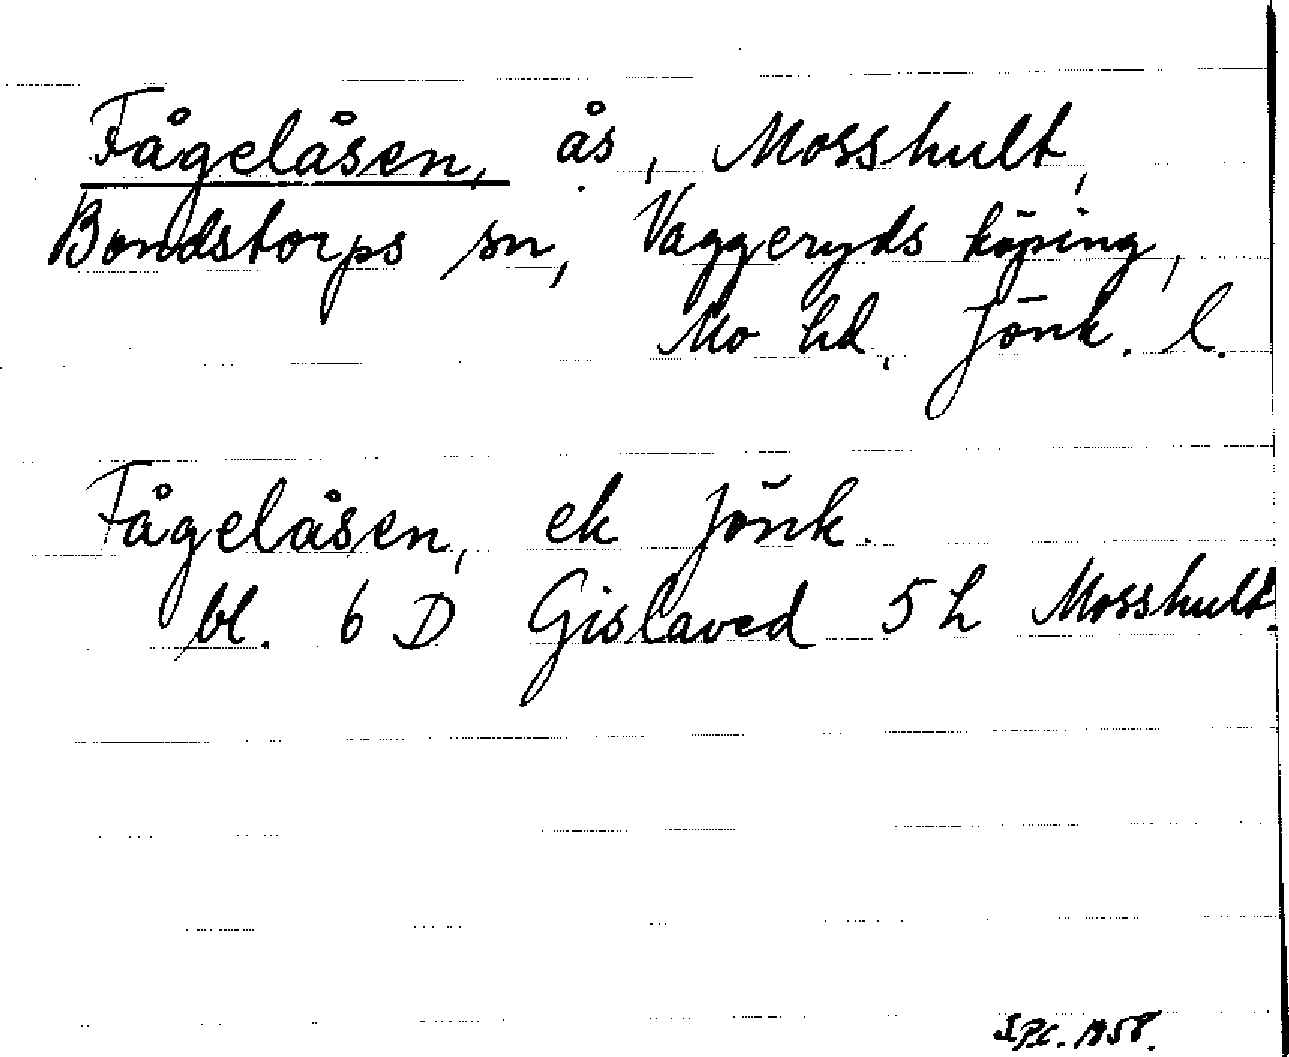 Fågelåsen, ås, Mosshult,
Bondstorps sn, Vaggeryds köping,
Mo hd, Jönk. l.
Fågelåsen, ek Jönk.
bl. 6 D Gislaved 5 h Mosshult.
1958.